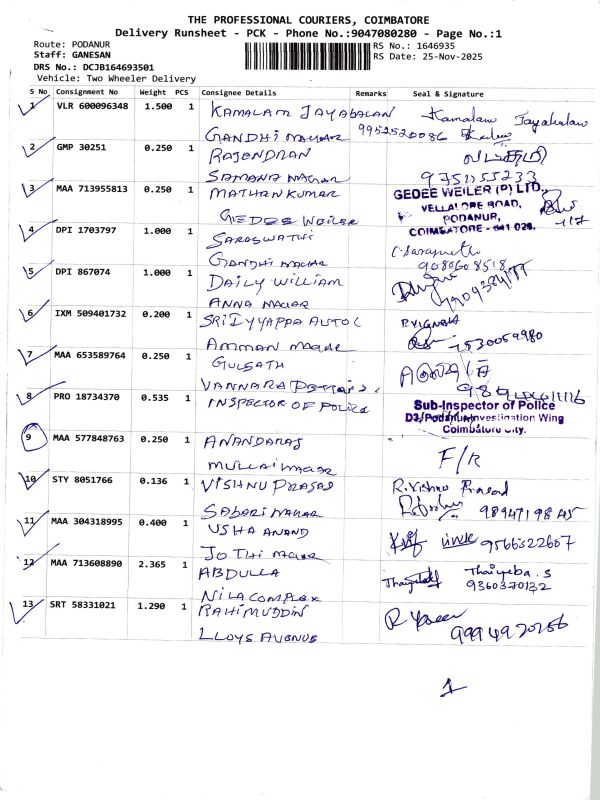 THE PROFESSIONAL COURIERS, COIMBATORE
Delivery Runsheet - PCK - Phone No.:9047080280 - Page No.:1
Route: PODANUR
RS No.: 1646935
Staff: GANESAN
RS Date: 25-Nov-2025
DRS No.: DCJB164693501
Vehicle: Two Wheeler Delivery
S No Consignment No Weight PCS Consignee Details Remarks Seal & Signature
1 VLR 600096348 1.500 1 KAMALAM JAYABALAN Kamalam Jayabalan
GANDHI NAGAR 9952520086
2 GMP 30251 0.250 1 RAJENDRAN
SAMANA NAGAR 9751155233
3 MAA 713955813 0.250 1 MATHANKUMAR GEDEE WEILER (P) LTD.,
VELLALORE ROAD,
GEDEE WEILER PODANUR,
COIMBATORE - 641 023.
4 DPI 1703797 1.000 1 SARASWATHI C. Saraswathi
GANDHI NAGAR 9080608518
5 DPI 867074 1.000 1 DAILY WILLIAM
ANNA NAGAR
6 IXM 509401732 0.200 1 SRI IYYAPPA AUTO C P.VIGNESH
AMMAN NAGAR 7530059980
7 MAA 653589764 0.250 1 GULSATH
VANNARA PETTAI
8 PRO 18734370 0.535 1 INSPECTOR OF POLICE Sub-Inspector of Police
D3/Podanur Investigation Wing
Coimbatore City.
9 MAA 577848763 0.250 1 ANANDARAJ F/R
MULLAI NAGAR
10 STY 8051766 0.136 1 VISHNU PRASAD R.Vishnu Prasad
SABARI NAGAR 9894719845
11 MAA 304318995 0.400 1 USHA ANAND 9566322607
JOTHI NAGAR
12 MAA 713608890 2.365 1 ABDULLA Thaiyeba.S
NILA COMPLEX 9360370132
13 SRT 58331021 1.290 1 RAHIMUDDIN
LLOYS AVENUE 9994920256
1